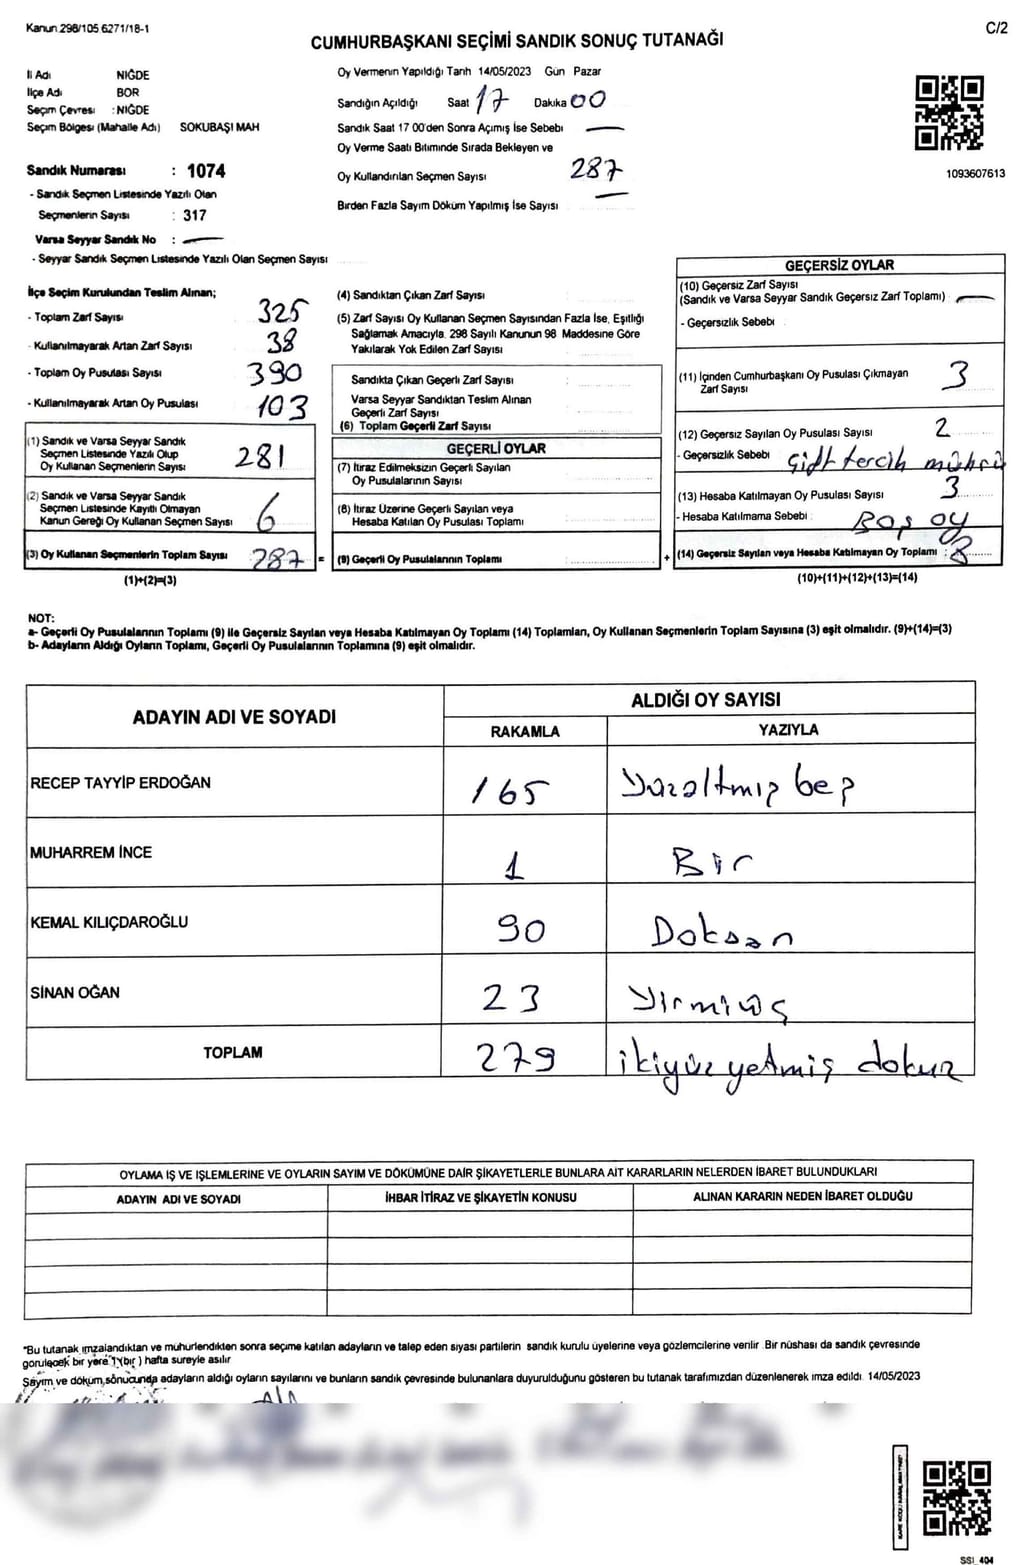 Kanun 298/105 6271/18-1
C/2
CUMHURBAŞKANI SEÇİMİ SANDIK SONUÇ TUTANAĞI
İl Adı NİĞDE
İlçe Adı BOR
Seçim Çevresi : NİĞDE
Seçim Bölgesi (Mahalle Adı) SOKUBAŞI MAH
Oy Vermenin Yapıldığı Tarih 14/05/2023 Gün Pazar
Sandığın Açıldığı Saat 17 Dakika 00
Sandık Saat 17 00'den Sonra Açımış İse Sebebi —
Oy Verme Saati Bitiminde Sırada Bekleyen ve
Oy Kullandırılan Seçmen Sayısı 287
Birden Fazla Sayım Döküm Yapılmış İse Sayısı —
1093607613
Sandık Numarası : 1074
- Sandık Seçmen Listesinde Yazılı Olan
Seçmenlerin Sayısı : 317
Varsa Seyyar Sandık No : —
- Seyyar Sandık Seçmen Listesinde Yazılı Olan Seçmen Sayısı
İlçe Seçim Kurulundan Teslim Alınan;
- Toplam Zarf Sayısı 325
- Kullanılmayarak Artan Zarf Sayısı 38
- Toplam Oy Pusulası Sayısı 390
- Kullanılmayarak Artan Oy Pusulası 103
(1) Sandık ve Varsa Seyyar Sandık
Seçmen Listesinde Yazılı Olup
Oy Kullanan Seçmenlerin Sayısı 281
(2) Sandık ve Varsa Seyyar Sandık
Seçmen Listesinde Kayıtlı Olmayan
Kanun Gereği Oy Kullanan Seçmen Sayısı 6
(3) Oy Kullanan Seçmenlerin Toplam Sayısı 287 =
(1)+(2)=(3)
(4) Sandıktan Çıkan Zarf Sayısı :
(5) Zarf Sayısı Oy Kullanan Seçmen Sayısından Fazla İse, Eşitliği
Sağlamak Amacıyla, 298 Sayılı Kanunun 98 Maddesine Göre
Yakılarak Yok Edilen Zarf Sayısı
Sandıkta Çıkan Geçerli Zarf Sayısı :
Varsa Seyyar Sandıktan Teslim Alınan
Geçerli Zarf Sayısı
(6) Toplam Geçerli Zarf Sayısı
GEÇERLİ OYLAR
(7) İtiraz Edilmeksizin Geçerli Sayılan
Oy Pusulalarının Sayısı
(8) İtiraz Üzerine Geçerli Sayılan veya
Hesaba Katılan Oy Pusulası Toplamı
(9) Geçerli Oy Pusulalarının Toplamı +
GEÇERSİZ OYLAR
(10) Geçersiz Zarf Sayısı
(Sandık ve Varsa Seyyar Sandık Geçersiz Zarf Toplamı) : —
- Geçersizlik Sebebi :
(11) İçinden Cumhurbaşkanı Oy Pusulası Çıkmayan
Zarf Sayısı 3
(12) Geçersiz Sayılan Oy Pusulası Sayısı 2
- Geçersizlik Sebebi : Çift tercih mührü
(13) Hesaba Katılmayan Oy Pusulası Sayısı 3
- Hesaba Katılmama Sebebi : Boş oy
(14) Geçersiz Sayılan veya Hesaba Katılmayan Oy Toplamı : 8
(10)+(11)+(12)+(13)=(14)
NOT:
a- Geçerli Oy Pusulalarının Toplamı (9) ile Geçersiz Sayılan veya Hesaba Katılmayan Oy Toplamı (14) Toplamları, Oy Kullanan Seçmenlerin Toplam Sayısına (3) eşit olmalıdır. (9)+(14)=(3)
b- Adayların Aldığı Oyların Toplamı, Geçerli Oy Pusulalarının Toplamına (9) eşit olmalıdır.
ADAYIN ADI VE SOYADI
ALDIĞI OY SAYISI
RAKAMLA YAZIYLA
RECEP TAYYİP ERDOĞAN 165 Yüzaltmış beş
MUHARREM İNCE 1 Bir
KEMAL KILIÇDAROĞLU 90 Doksan
SİNAN OĞAN 23 Yirmiüç
TOPLAM 279 ikiyüz yetmiş dokuz
OYLAMA İŞ VE İŞLEMLERİNE VE OYLARIN SAYIM VE DÖKÜMÜNE DAİR ŞİKAYETLERLE BUNLARA AİT KARARLARIN NELERDEN İBARET BULUNDUKLARI
ADAYIN ADI VE SOYADI İHBAR İTİRAZ VE ŞİKAYETİN KONUSU ALINAN KARARIN NEDEN İBARET OLDUĞU
"Bu tutanak imzalandıktan ve mühürlendikten sonra seçime katılan adayların ve talep eden siyasi partilerin sandık kurulu üyelerine veya gözlemcilerine verilir Bir nüshası da sandık çevresinde
görülecek bir yere 1 (bir ) hafta süreyle asılır
Sayım ve döküm sonucunda adayların aldığı oyların sayılarını ve bunların sandık çevresinde bulunanlara duyurulduğunu gösteren bu tutanak tarafımızdan düzenlenerek imza edildi. 14/05/2023
SSI_404